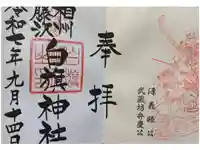 奉拝
相州
藤沢
白旗神社
令和七年九月十四日
源義經公
武蔵坊弁慶公